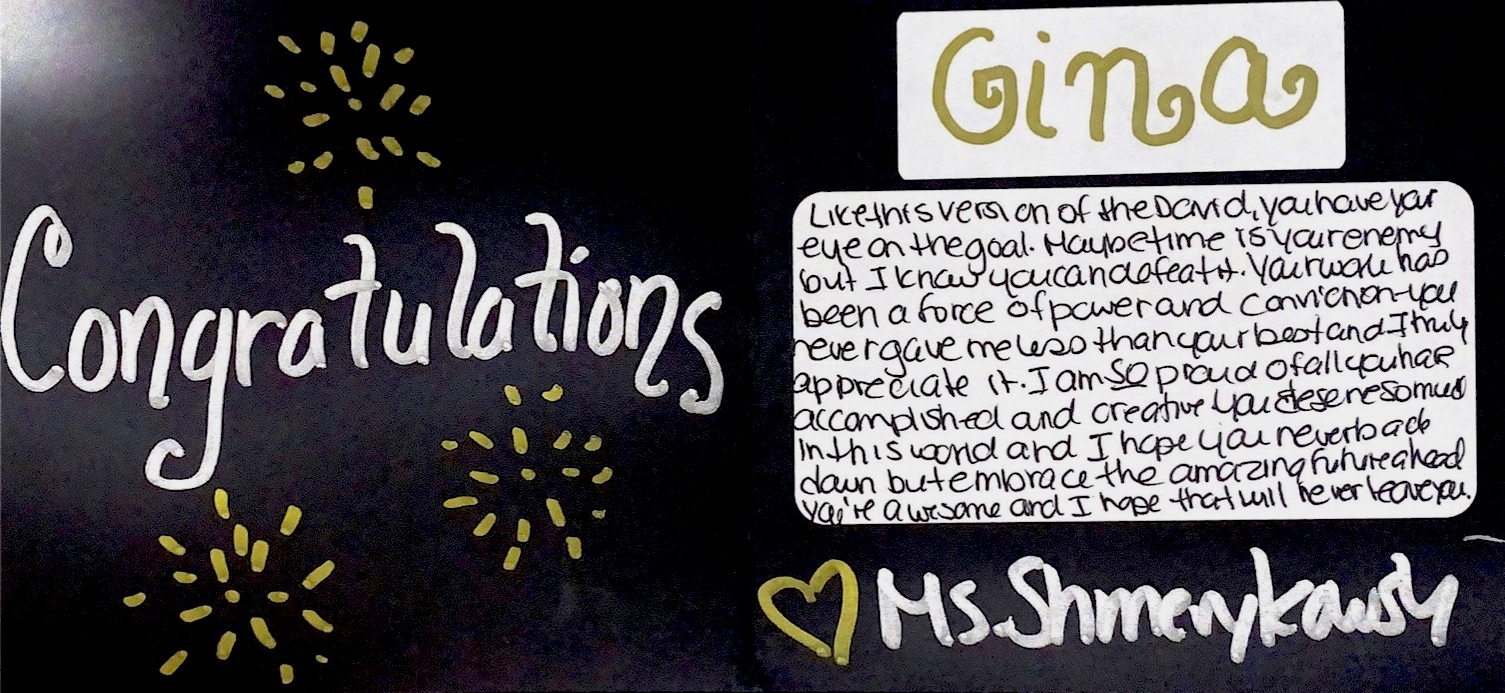 Congratulations
Gina
Like this version of the David, you have your
eye on the goal. Maybe time is your enemy
but I know you can defeat it. Your work has
been a force of power and conviction-you
never gave me less than your best and I truly
appreciate it. I am SO proud of all you have
accomplished and creative you deserve so much
in this world and I hope you never back
down but embrace the amazing future ahead
you're awesome and I hope that will never leave you.
Ms. Shmerykowsky